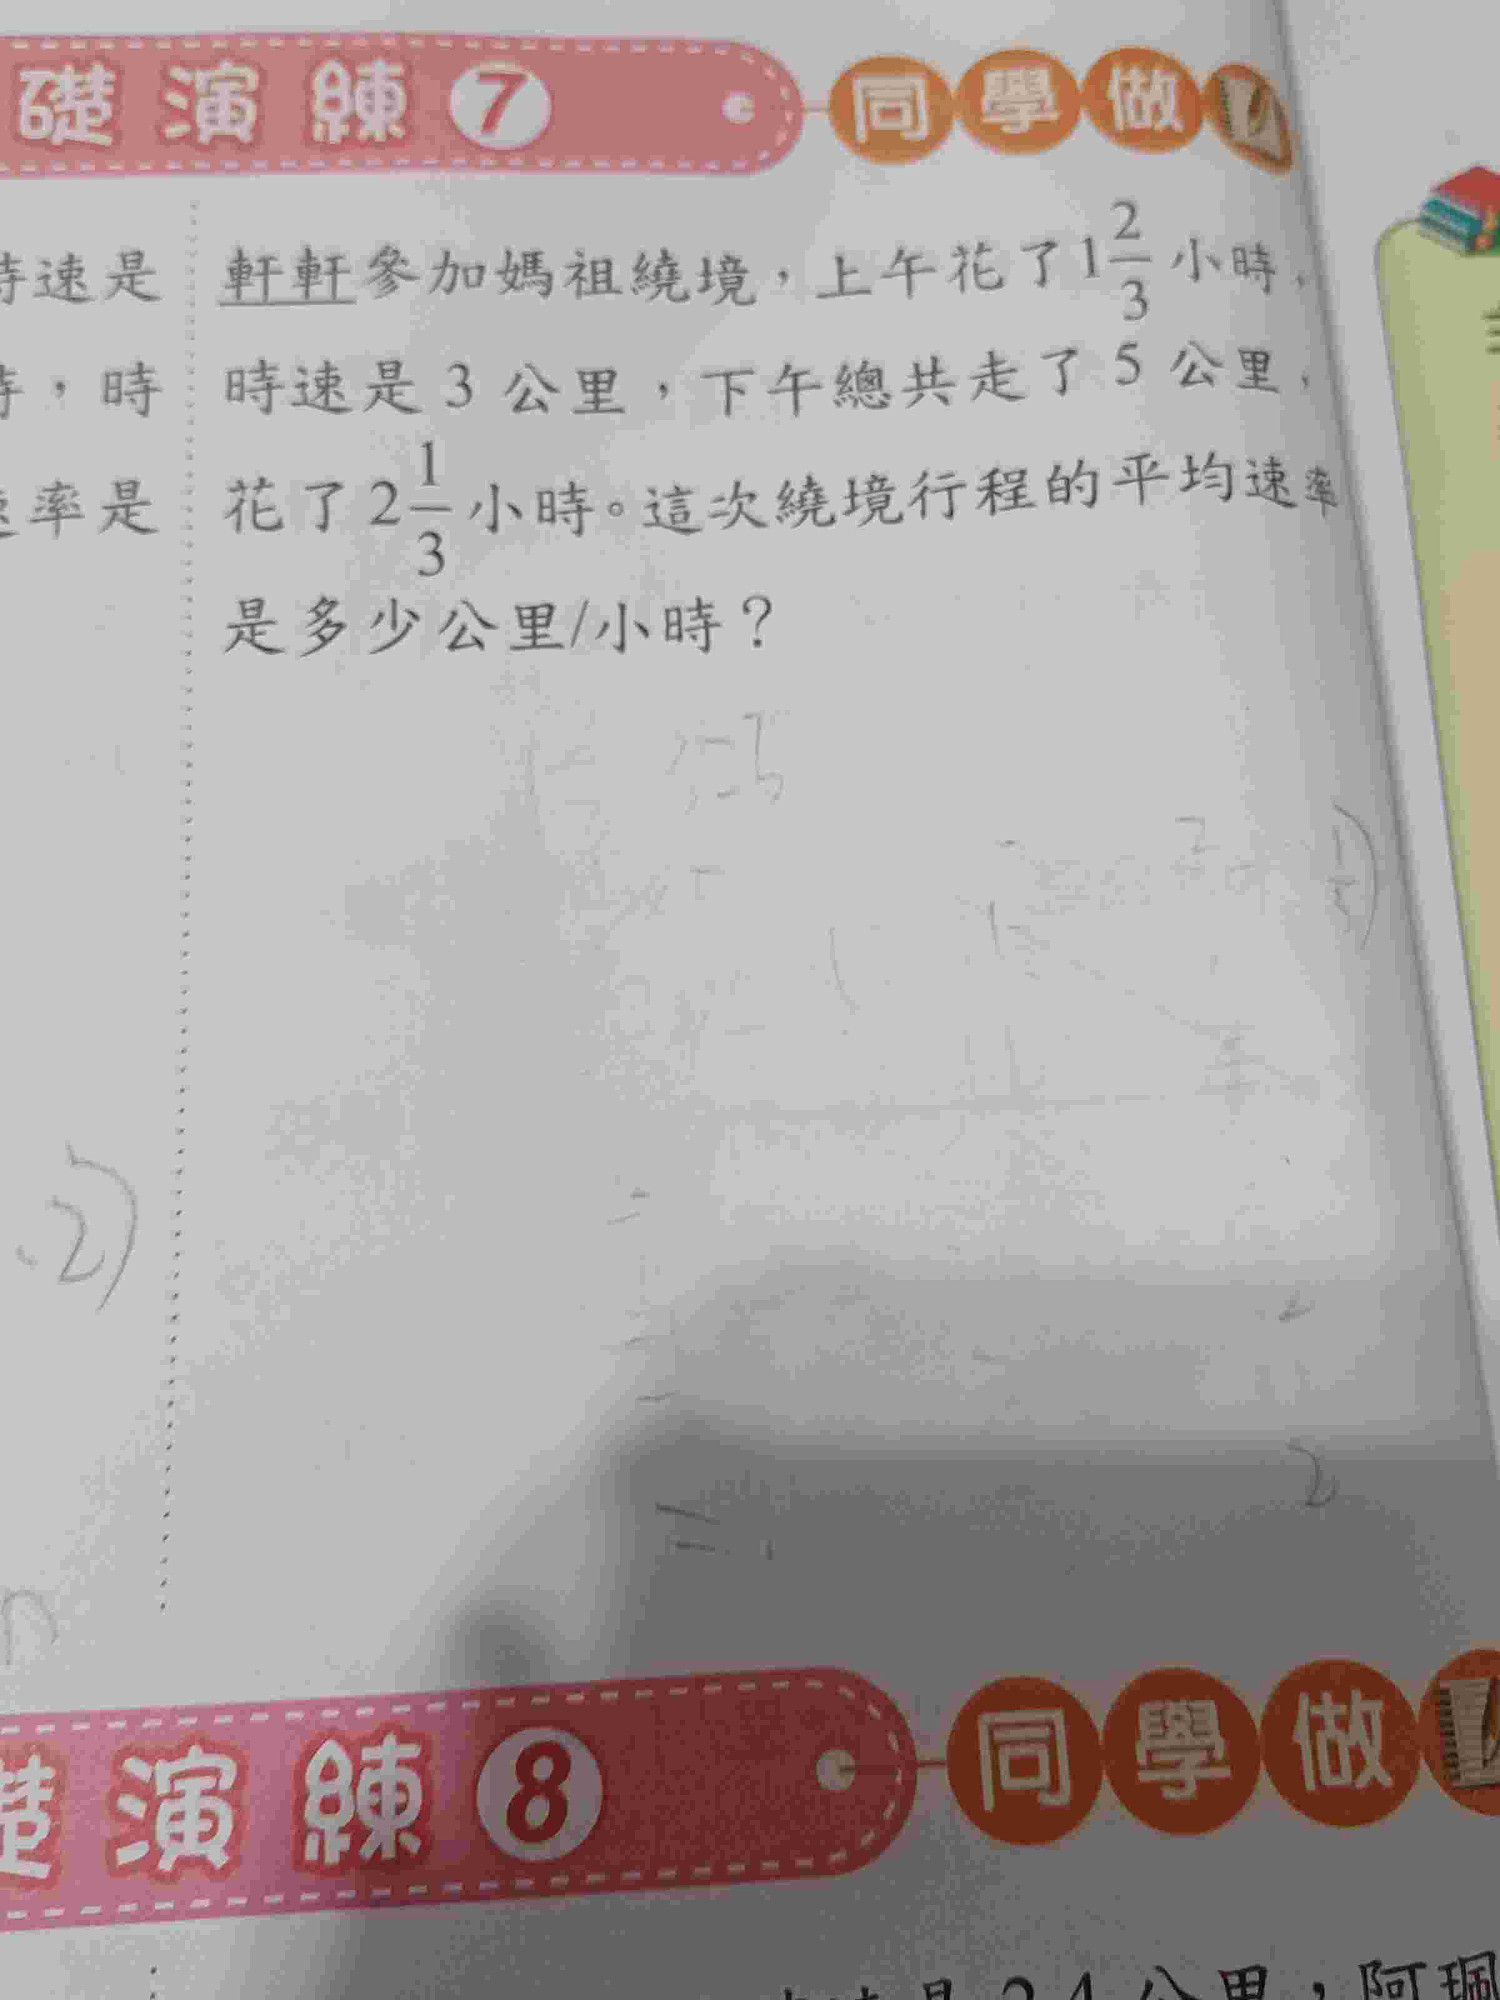 礎演練7 同學做
時速是
軒軒參加媽祖繞境，上午花了1 2/3 小時，
時，時
時速是 3 公里，下午總共走了 5 公里，
速率是
花了2 1/3 小時。這次繞境行程的平均速率
是多少公里/小時？
2)
礎演練8 同學做
是 2.4 公里，阿珮